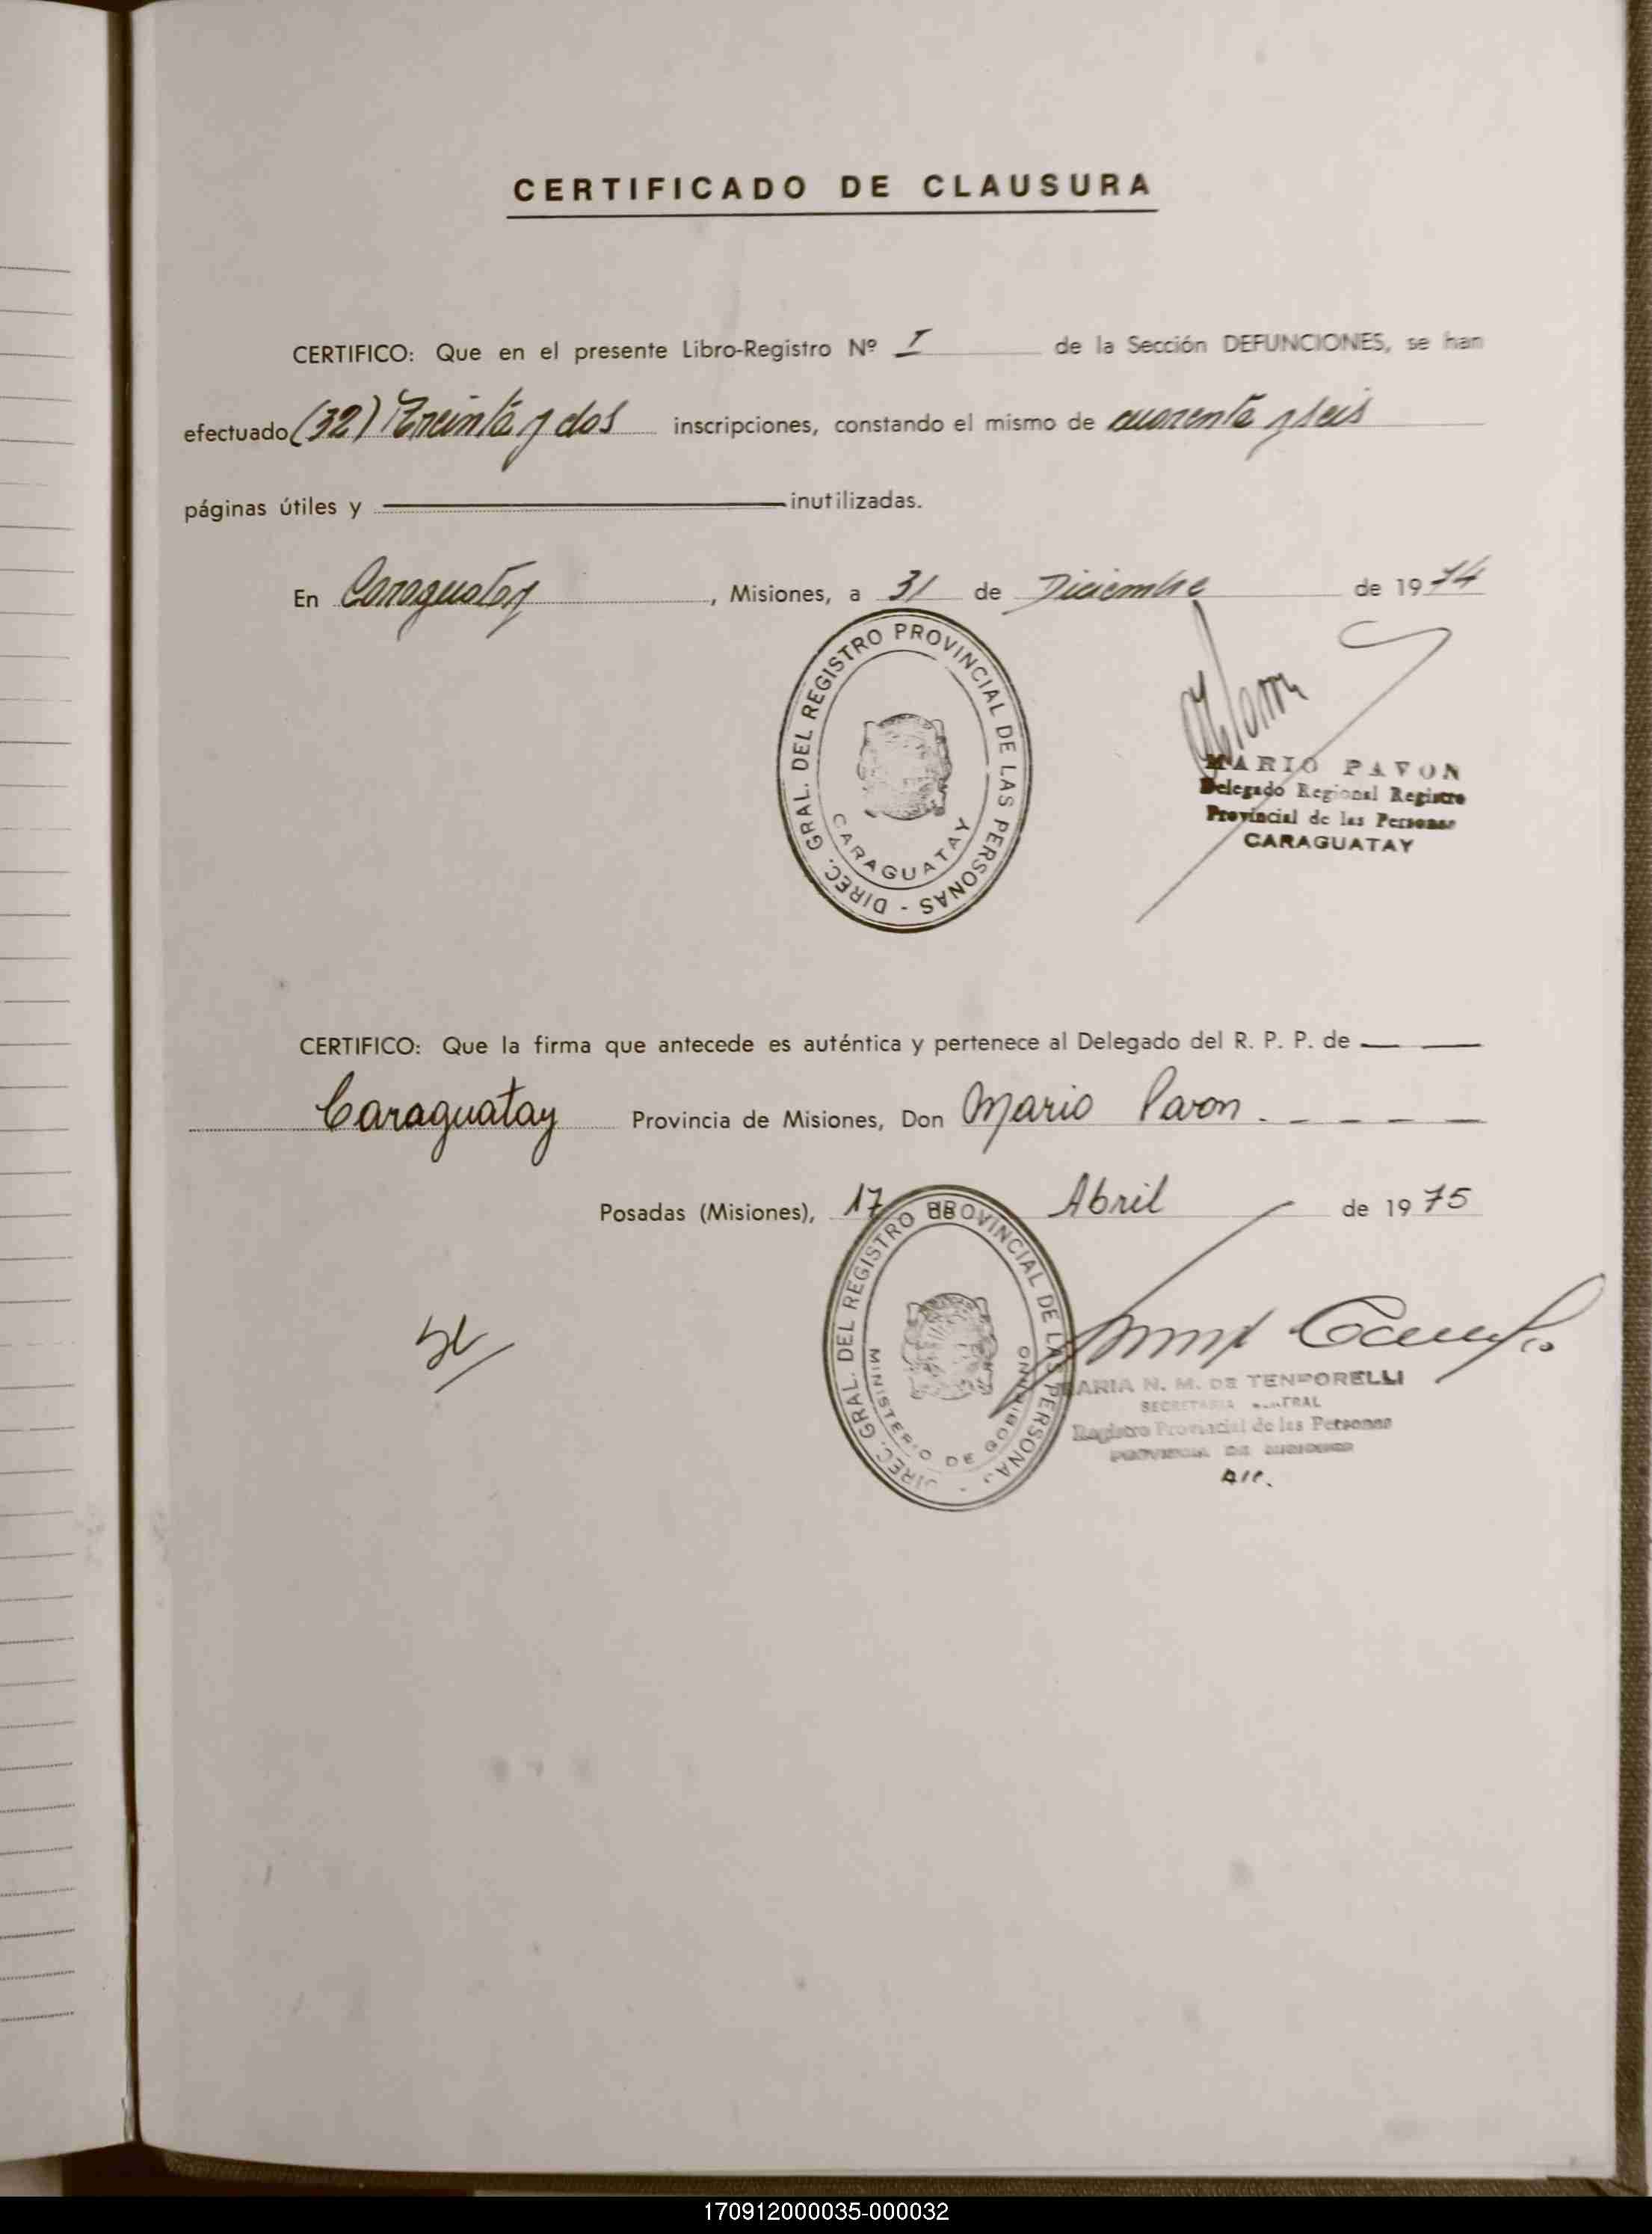 CERTIFICADO DE CLAUSURA
CERTIFICO: Que en el presente Libro-Registro Nº I de la Sección DEFUNCIONES, se han
efectuado (32) Treinta y dos inscripciones, constando el mismo de cuarenta y seis
páginas útiles y inutilizadas.
En Caraguatay, Misiones, a 31 de Diciembre de 1974
DIREC. GRAL. DEL REGISTRO PROVINCIAL DE LAS PERSONAS -
CARAGUATAY
MARIO PAVON
Delegado Regional Registro
Provincial de las Personas
CARAGUATAY
CERTIFICO: Que la firma que antecede es auténtica y pertenece al Delegado del R. P. P. de
Caraguatay Provincia de Misiones, Don Mario Pavon.
Posadas (Misiones), 17 Abril de 1975
DIREC. GRAL. DEL REGISTRO PROVINCIAL DE LAS PERSONAS -
MINISTERIO DE GOBIERNO
MARIA N. M. DE
SECRETARIA
Registro Provincial de las Personas
PROVINCIA DE MISIONES
170912000035-000032